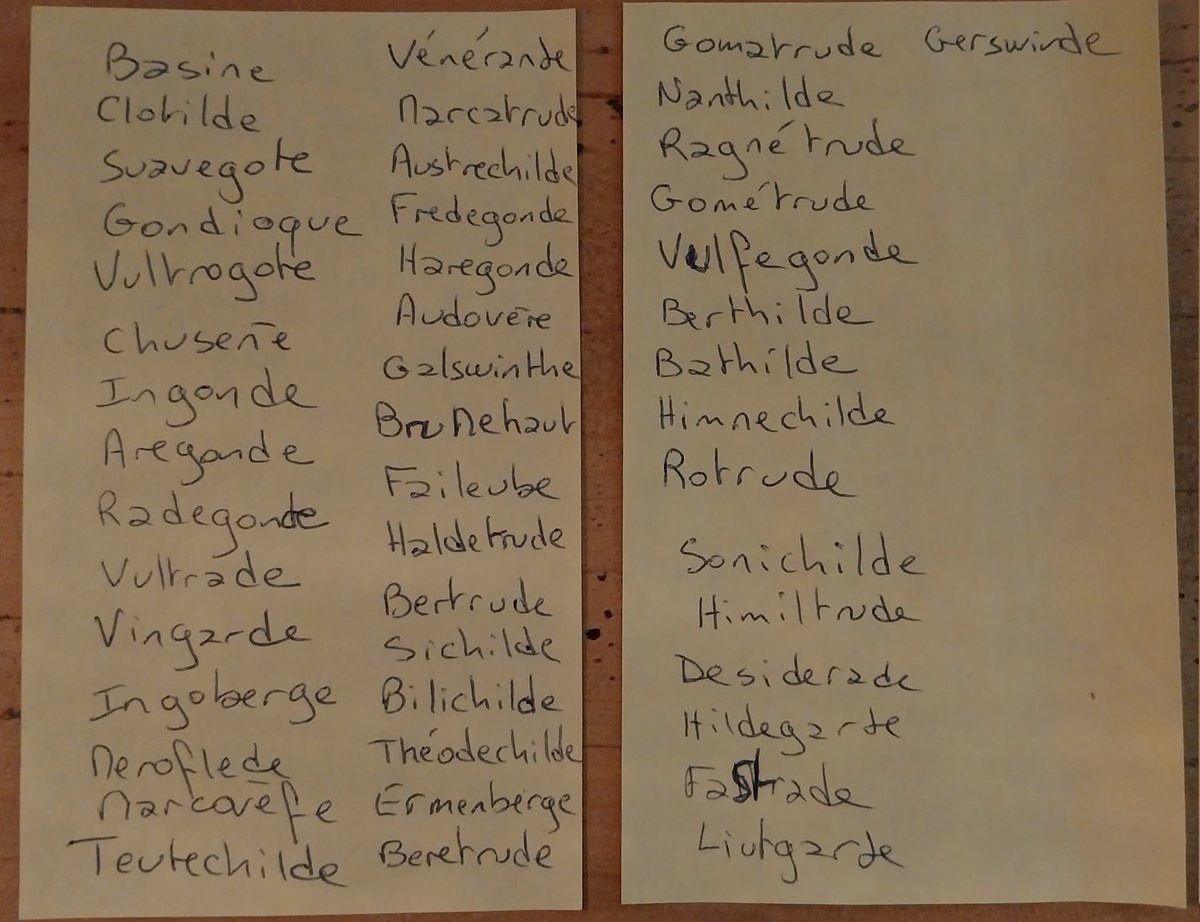 Basine
Clotilde
Suavegote
Gondioque
Vultrogote
Chuseñe
Ingonde
Aregonde
Radegonde
Vultrade
Vingarde
Ingoberge
Meroflede
Marcovèfe
Teutechilde
Vénérande
Marcatrude
Austrechilde
Fredegonde
Haregonde
Audovère
Galswinthe
Brunehaut
Faileube
Haldetrude
Bertrude
Sichilde
Bilichilde
Théodechilde
Ermenberge
Beretrude
Gomatrude Gerswinde
Nanthilde
Ragnétrude
Gométrude
Vulfegonde
Berthilde
Bathilde
Himnechilde
Rotrude
Sonichilde
Himiltrude
Desiderade
Hildegarde
Fastrade
Liutgarde